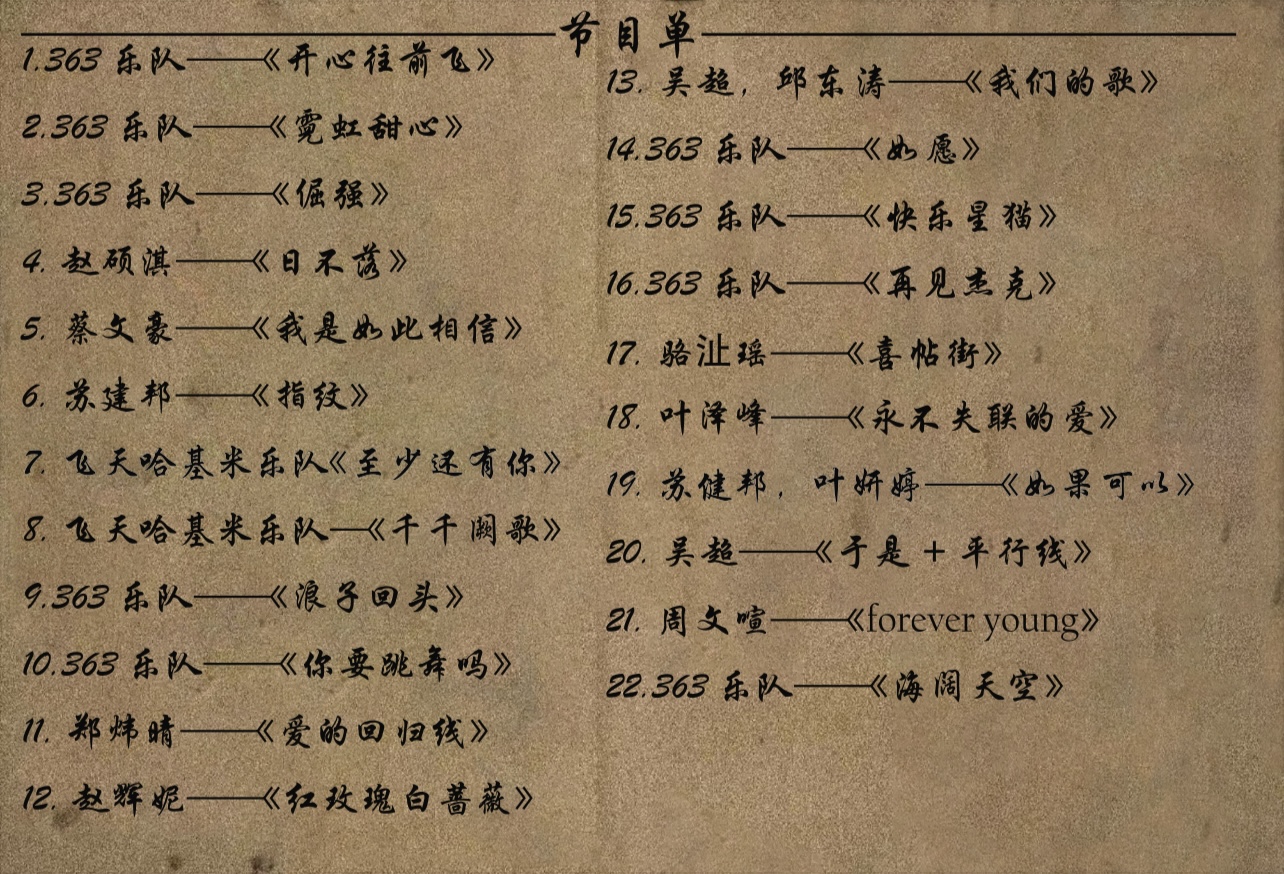 节目单
1.363 乐队——《开心往前飞》
2.363 乐队——《霓虹甜心》
3.363 乐队——《倔强》
4. 赵硕淇——《日不落》
5. 蔡文豪——《我是如此相信》
6. 苏建邦——《指纹》
7. 飞天哈基米乐队《至少还有你》
8. 飞天哈基米乐队—《千千阙歌》
9.363 乐队——《浪子回头》
10.363 乐队——《你要跳舞吗》
11. 郑炜晴——《爱的回归线》
12. 赵辉妮——《红玫瑰白蔷薇》
13. 吴超，邱东涛——《我们的歌》
14.363 乐队——《如愿》
15.363 乐队——《快乐星猫》
16.363 乐队——《再见杰克》
17. 骆沚瑶——《喜帖街》
18. 叶泽峰——《永不失联的爱》
19. 苏健邦，叶妍婷——《如果可以》
20. 吴超——《于是 + 平行线》
21. 周文喧——《forever young》
22.363 乐队——《海阔天空》